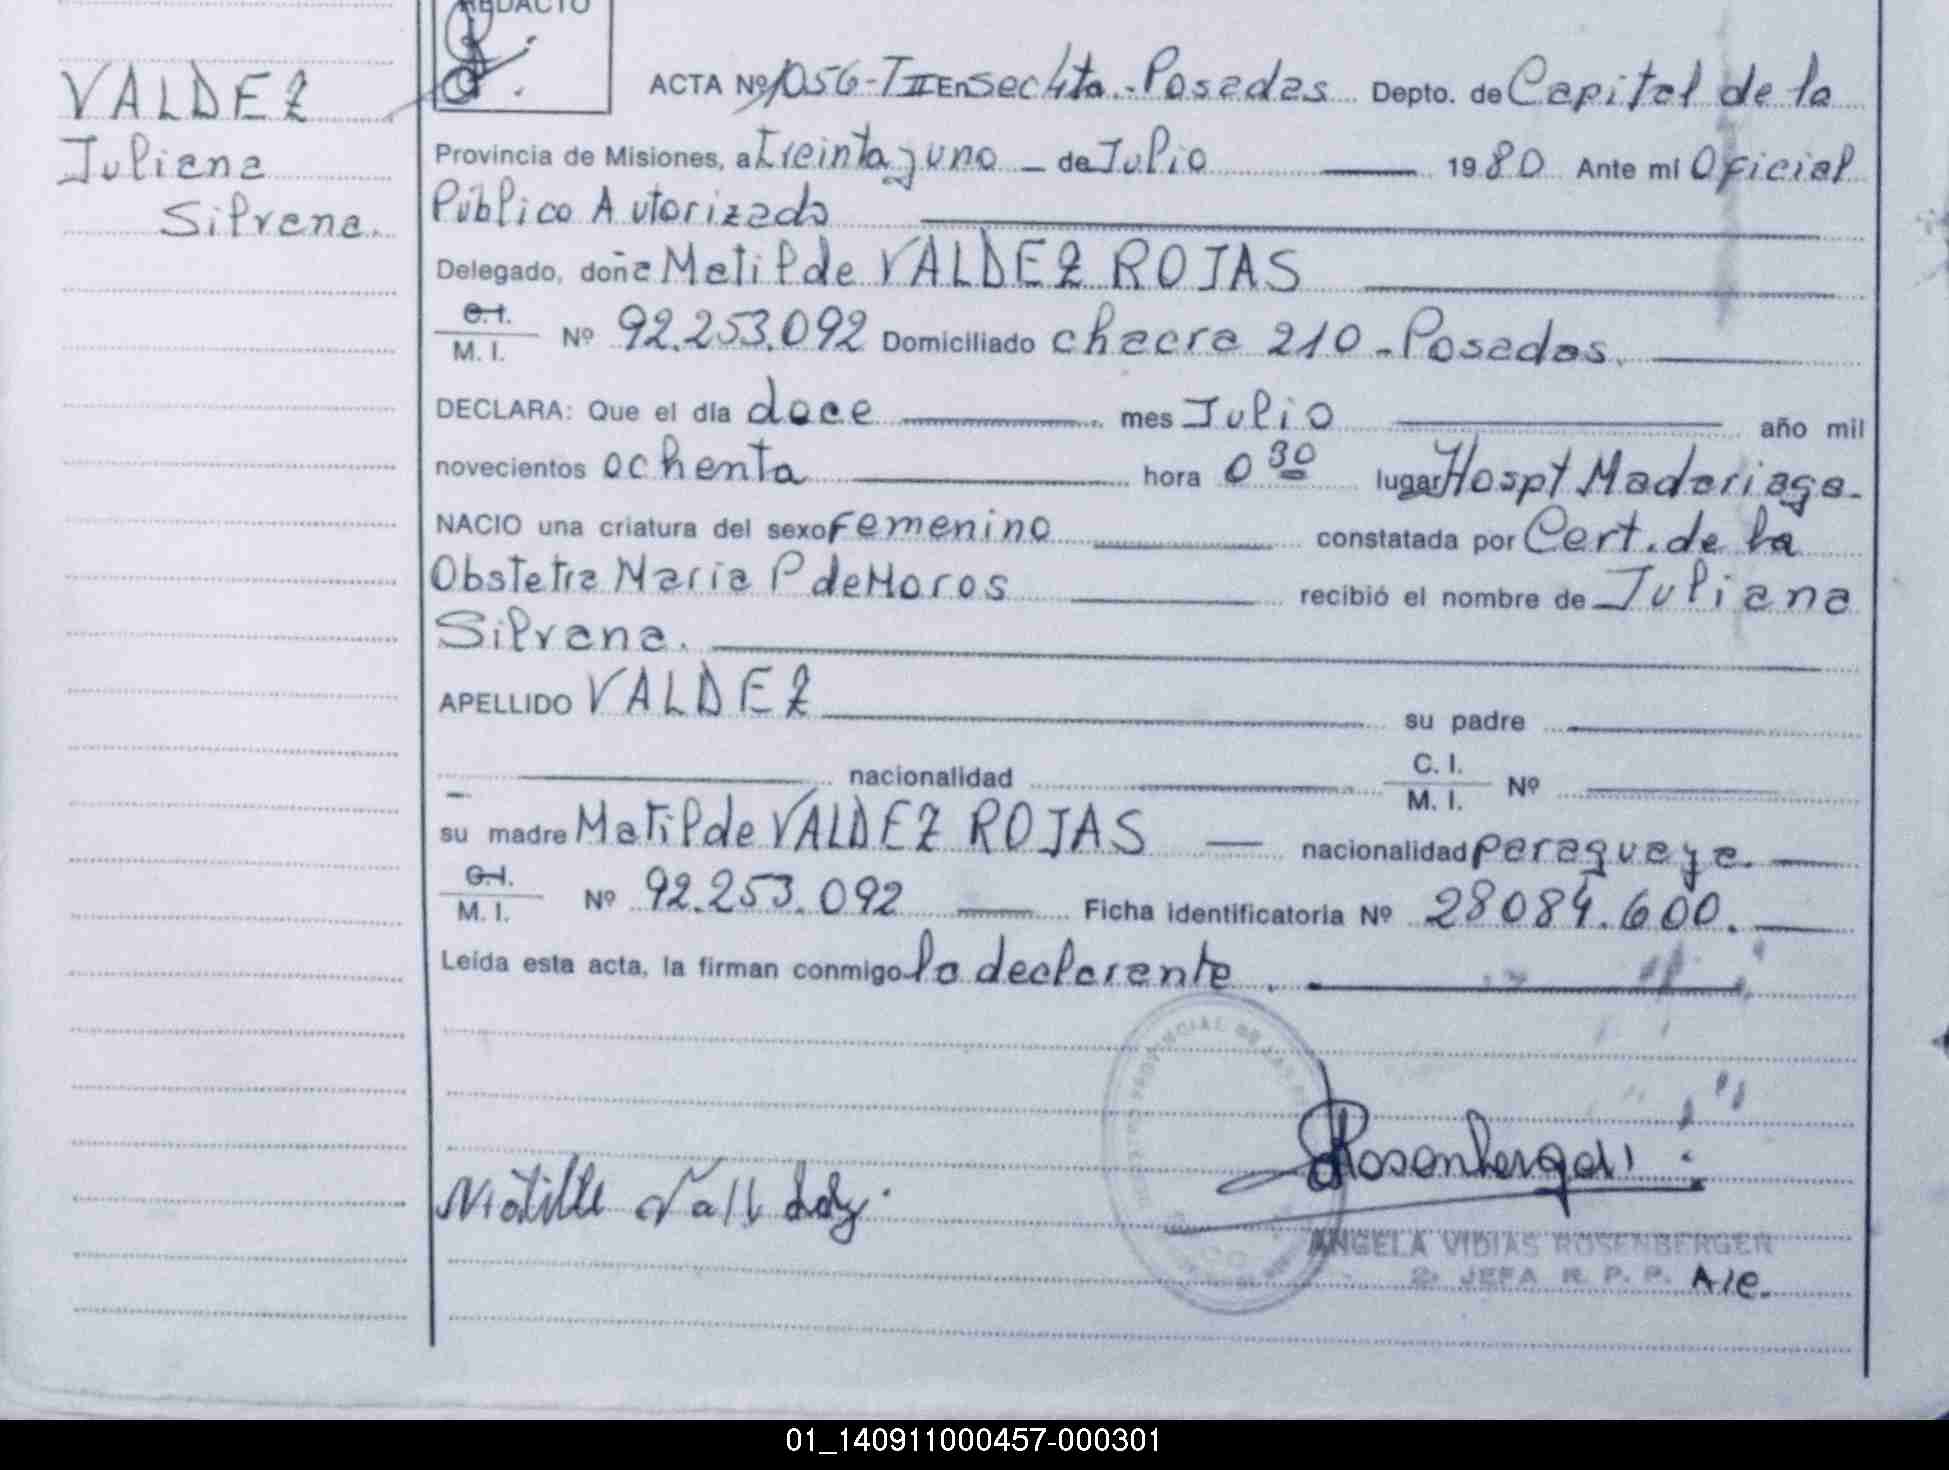 REDACTO
VALDEZ
Juliana
Silvana.
ACTA Nº 1056-TII En Sec 4ta.-Posadas Depto. de Capital de la
Provincia de Misiones, a treinta y uno de Julio 1980 Ante mi Oficial
Público Autorizado
Delegado, doña Matilde VALDEZ ROJAS
C.I. / M. I. Nº 92.253.092 Domiciliado chacra 210-Posadas.
DECLARA: Que el día doce mes Julio año mil
novecientos ochenta hora 0 30 lugar Hospt Madariaga.
NACIO una criatura del sexo Femenino constatada por Cert. de la
Obstetra Maria P de Moros recibió el nombre de Juliana
Silvana.
APELLIDO VALDEZ su padre
nacionalidad C. I. / M. I. Nº
su madre Matilde VALDEZ ROJAS nacionalidad paraguaya.
C.I. / M. I. Nº 92.253.092 Ficha identificatoria Nº 28084.600.
Leída esta acta, la firman conmigo la declarante
PROVINCIAL DE LAS
Rosenberger
ANGELA VIDIAS ROSENBERGER
2º JEFA R. P. P. A/c.
01_140911000457-000301